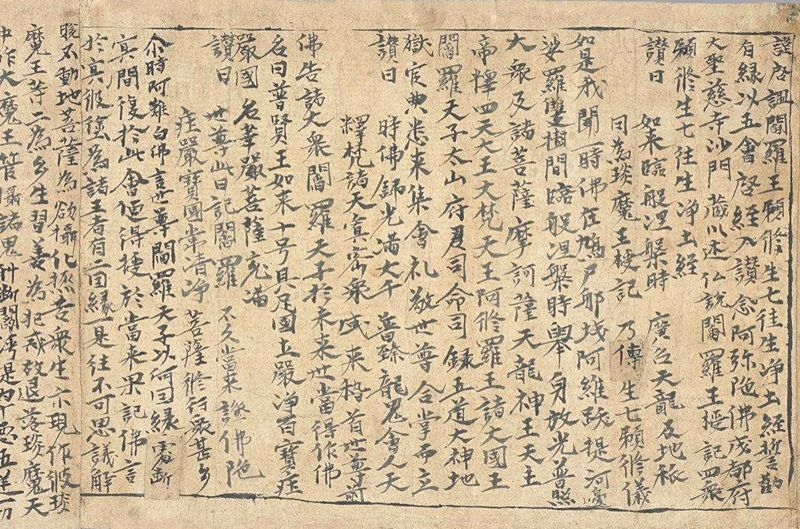 謹啓諷閻羅王預修生七往生淨土經誓勸
有緣以五會啓經入讚念阿弥陁佛成都府
大聖慈寺沙門藏川述仏說閻羅王授記四衆
預修生七往生淨土經
讚曰 如来臨般涅槃時 廣召天龍及地秖
因為琰魔王授記 乃傳生七預修儀
如是我聞一時佛在鳩尸那城阿維跋提河邊
娑羅雙樹間臨般涅槃時舉身放光普照
大衆及諸菩薩摩訶薩天龍神王天主
帝釋四天大王大梵天王阿修羅王諸大國王
閻羅天子太山府君司命司錄五道大神地
獄官典悉来集會礼敬世尊合掌而立
讚曰 時佛錦光滿大千 普臻龍鬼會人天
釋梵諸天冥密衆 咸来稽首世尊前
佛告諸大衆閻羅天子於未来世當得作佛
名曰普賢王如来十号具足國土嚴淨百寶莊
嚴國名華嚴菩薩充滿
讚曰 世尊此日記閻羅 不久當来證佛陁
莊嚴寶國常清淨 菩薩修行衆甚多
尒時阿難白佛言世尊閻羅天子以何因緣處断
冥間復於此會便得授於當来果記佛言
於冥彼途為諸王者有二因緣一是住不可思議解
脫不動地菩薩為欲攝化極苦衆生示現作彼琰
魔王等二為多生習善為犯戒故退落琰魔天
中作大魔王管攝諸鬼科断閻浮提內十惡五逆一切